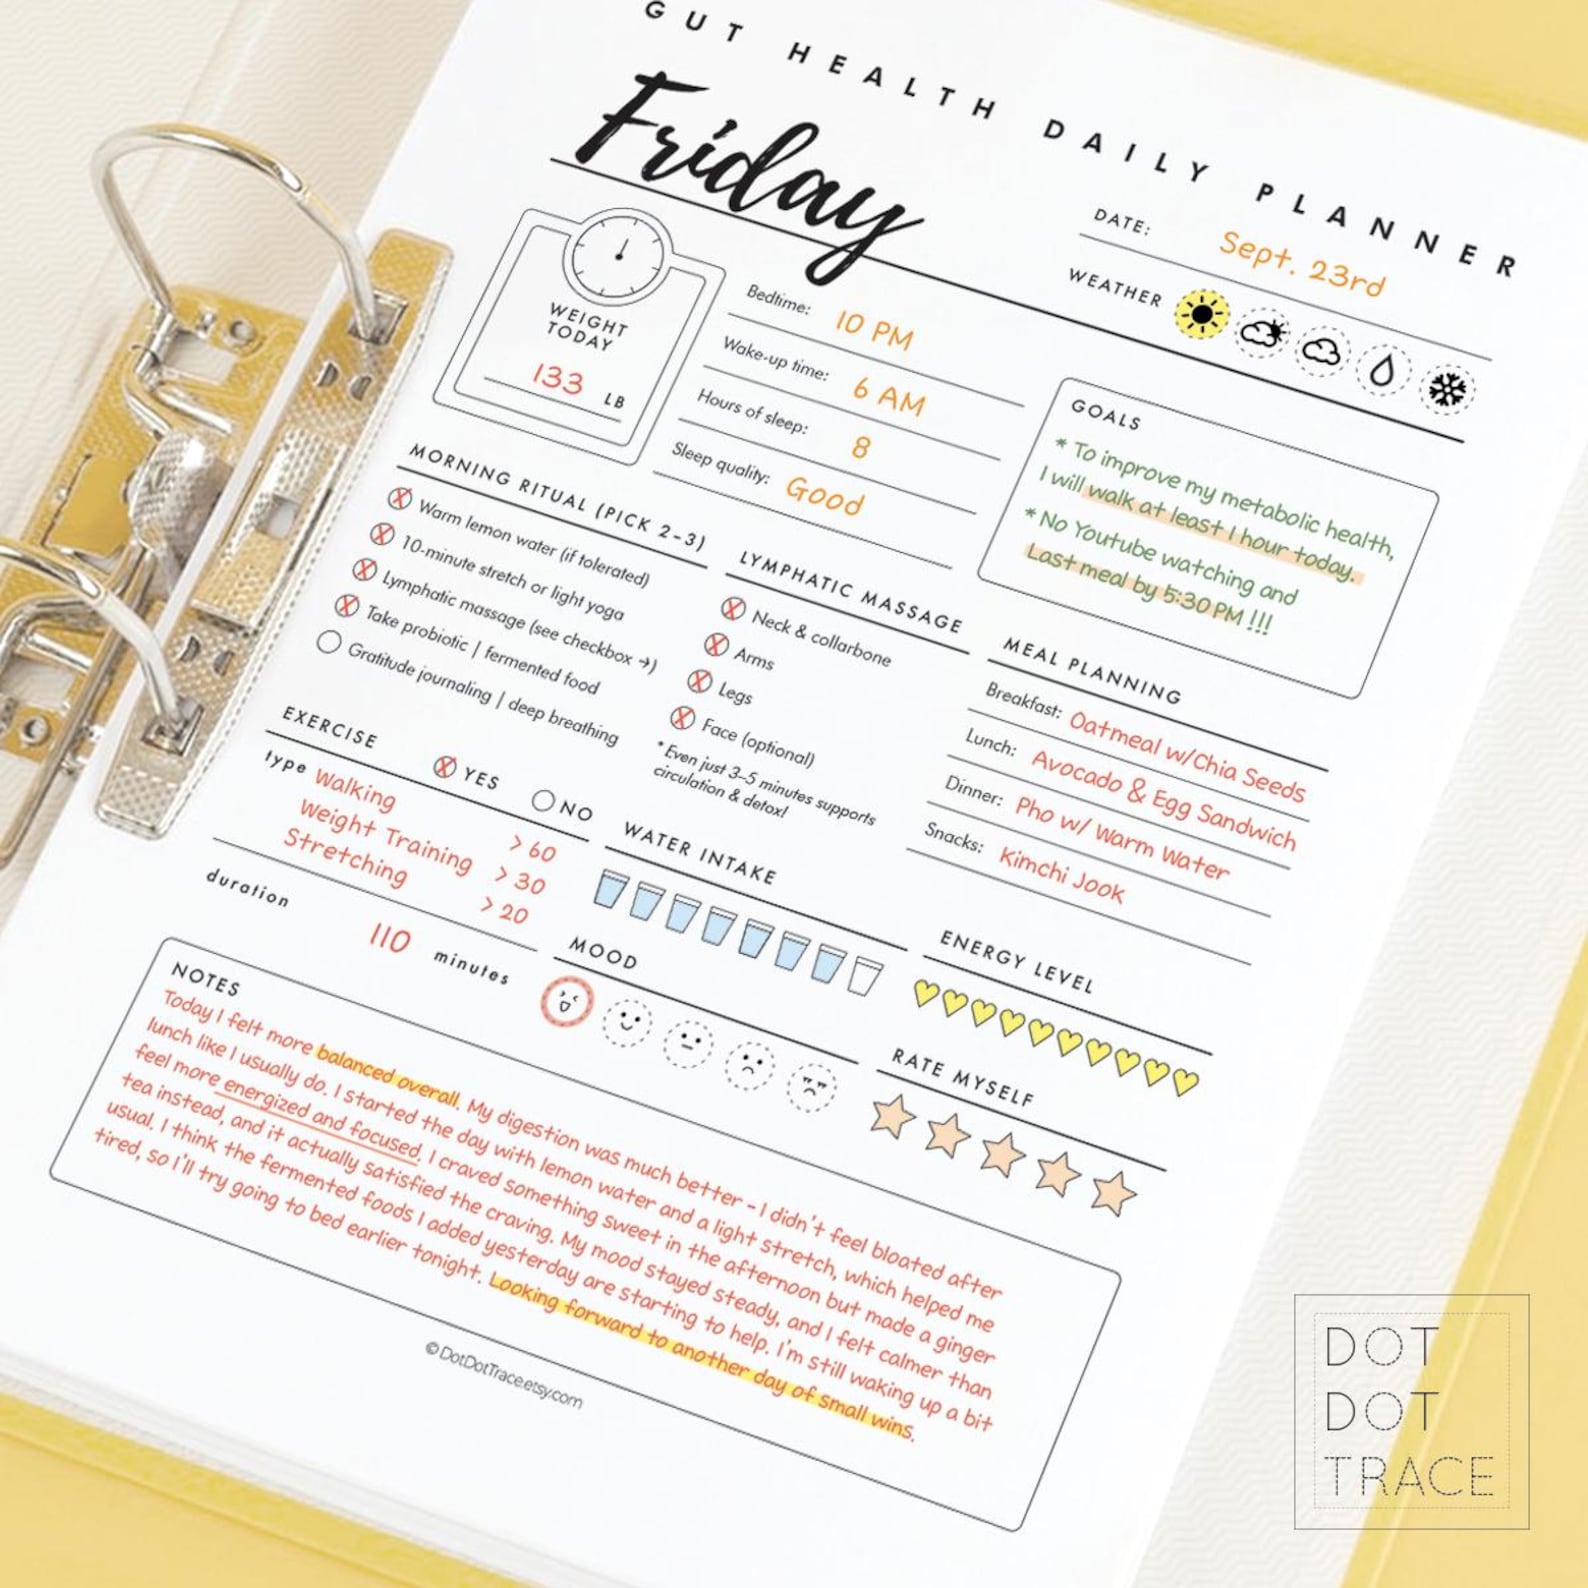 GUT HEALTH DAILY PLANNER
Friday
DATE: Sept. 23rd
WEATHER
WEIGHT
TODAY
133 LB
Bedtime: 10 PM
Wake-up time: 6 AM
Hours of sleep: 8
Sleep quality: Good
GOALS
* To improve my metabolic health,
I will walk at least 1 hour today.
* No Youtube watching and
Last meal by 5:30 PM !!!
MORNING RITUAL (PICK 2-3)
Warm lemon water (if tolerated)
10-minute stretch or light yoga
Lymphatic massage (see checkbox →)
Take probiotic | fermented food
Gratitude journaling | deep breathing
LYMPHATIC MASSAGE
Neck & collarbone
Arms
Legs
Face (optional)
*Even just 3–5 minutes supports
circulation & detox!
MEAL PLANNING
Breakfast: Oatmeal w/Chia Seeds
Lunch: Avocado & Egg Sandwich
Dinner: Pho w/ Warm Water
Snacks: Kimchi Jook
EXERCISE
YES NO
type Walking > 60
Weight Training > 30
Stretching > 20
duration 110 minutes
WATER INTAKE
MOOD
ENERGY LEVEL
RATE MYSELF
NOTES
Today I felt more balanced overall. My digestion was much better - I didn't feel bloated after
lunch like I usually do. I started the day with lemon water and a light stretch, which helped me
feel more energized and focused. I craved something sweet in the afternoon but made a ginger
tea instead, and it actually satisfied the craving. My mood stayed steady, and I felt calmer than
usual. I think the fermented foods I added yesterday are starting to help. I'm still waking up a bit
tired, so I'll try going to bed earlier tonight. Looking forward to another day of small wins.
© DotDotTrace.etsy.com
DOT
DOT
TRACE